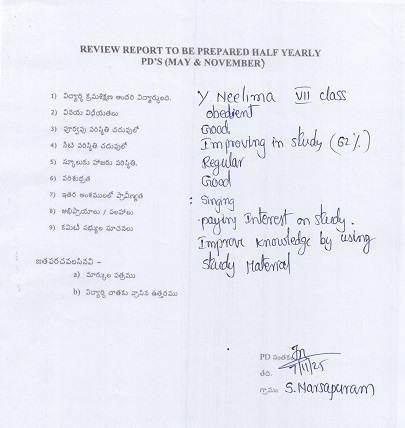 REVIEW REPORT TO BE PREPARED HALF YEARLY
PD'S (MAY & NOVEMBER)
1) విద్యార్థి క్రమశిక్షణ అందరి విద్యార్థులది. Y Neelima VII class
2) వినయ విధేయతలు obedient
3) పూర్వపు పరిస్థితి చదువులో Good.
4) నేటి పరిస్థితి చదువులో Improving in study (62%)
5) స్కూలుకు హాజరు పరిస్థితి. Regular
6) పరిశుభ్రత Good
7) ఇతర అంశములలో ప్రావీణ్యత : Singing
8) అభిప్రాయాలు / సలహాలు paying Interest on study.
9) కమిటీ సభ్యుల సూచనలు Improve knowledge by using
study Material
జతపరచవలసినవి –
a) మార్కుల పత్రము
b) విద్యార్థి దాతకు వ్రాసిన ఉత్తరము
PD సంతకం
తేది. 7/11/25
గ్రామం: S. Narsapuram